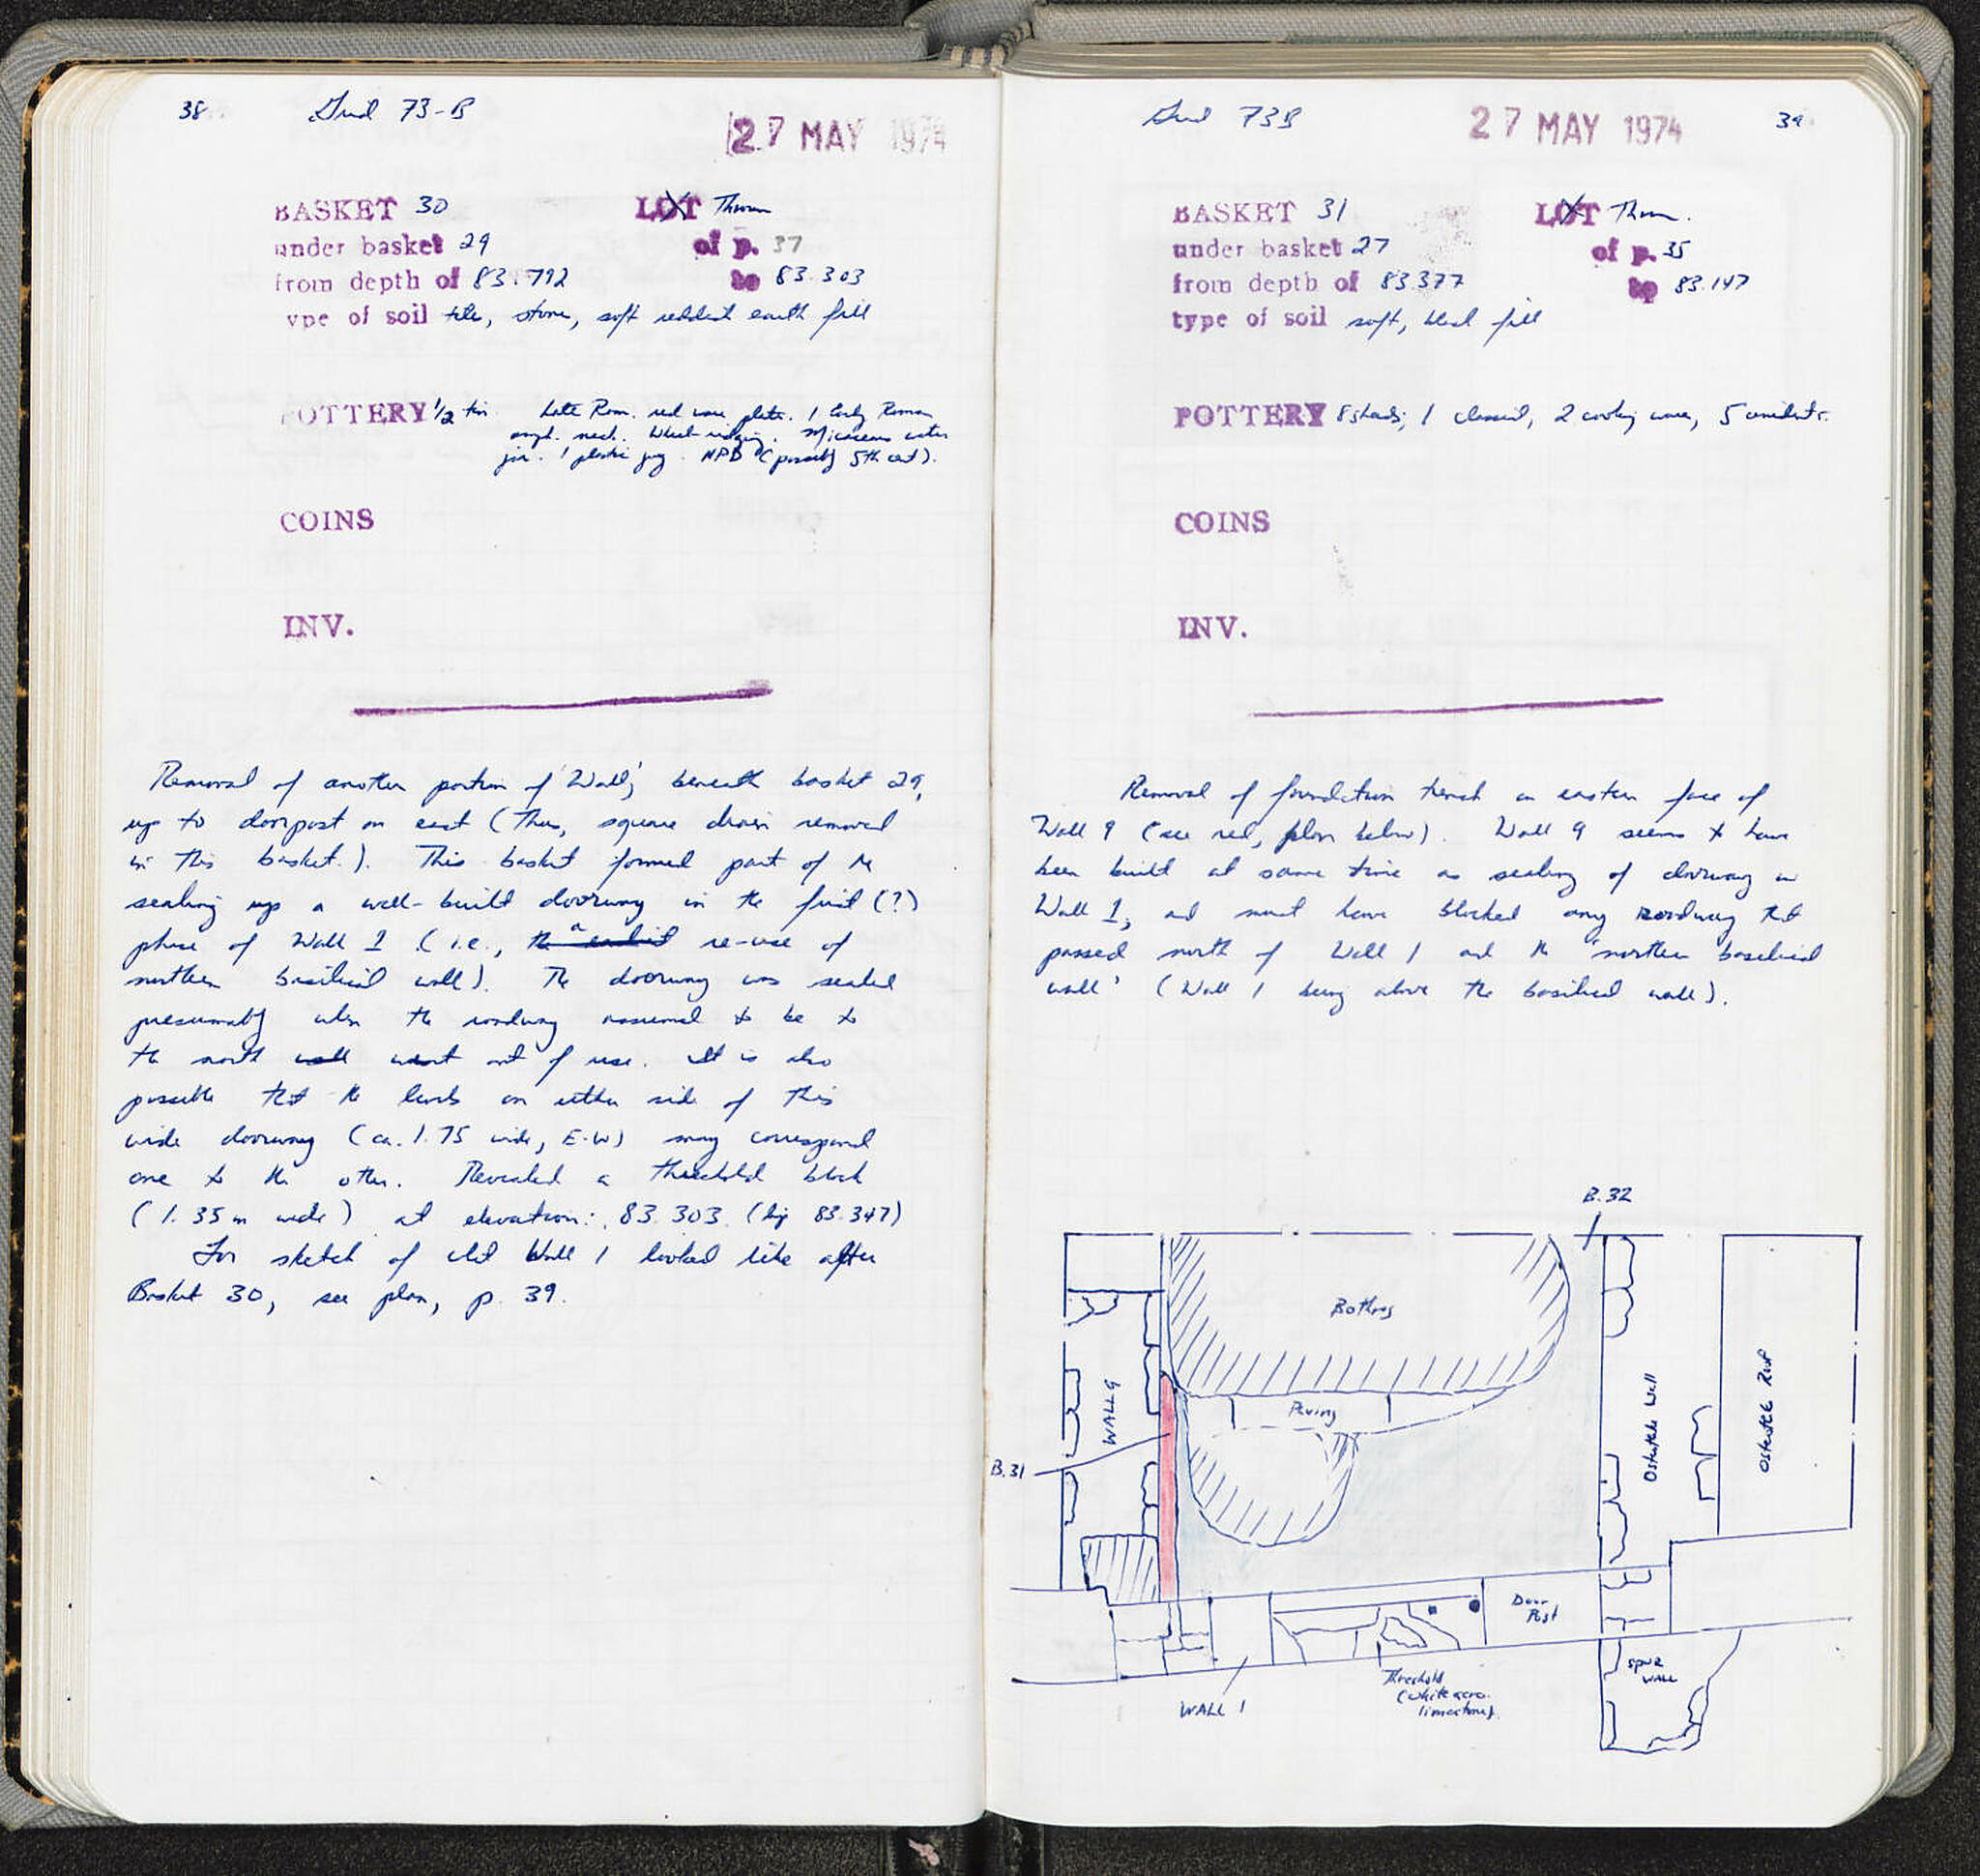 38 Grid 73-B
27 MAY 1974
BASKET 30 LOT Thrown
under basket 29 of p. 37
from depth of 83.792 to 83.303
ype of soil tile, stone, soft reddish earth fill
POTTERY 1/2 tin Late Rom. red ware plate. 1 Early Roman
amph. neck. Wheel-ridging. Micaceous water
jar. 1 plastic jug. NPD (possibly 5th cent).
COINS
INV.
Removal of another portion of 'Wall', beneath basket 29,
up to doorpost on east (Thus, square drain removed
in this basket.). This basket formed part of the
sealing up a well-built doorway in the first (?)
phase of Wall 1 (i.e., the a earliest re-use of
northern basilical wall). The doorway was sealed
presumably when the roadway assumed to be to
the north wall went out of use. It is also
possible that the levels on either side of this
wide doorway (ca. 1.75 wide, E-W) may correspond
one to the other. Revealed a threshold block
(1.35 m wide) at elevation: 83.303 (hi 83.347)
For sketch of what Wall 1 looked like after
Basket 30, see plan, p. 39.
Grid 73B 27 MAY 1974 39
BASKET 31 LOT Thrown.
under basket 27 of p. 35
from depth of 83.377 to 83.147
type of soil soft, black fill
POTTERY 8 sherds; 1 classical, 2 cooking ware, 5 nondescr.
COINS
INV.
Removal of foundation trench on eastern face of
Wall 9 (see red, plan below). Wall 9 seems to have
been built at same time as sealing of doorway in
Wall 1, and must have blocked any roadway that
passed north of Wall 1 and the 'northern basilical
wall' (Wall 1 being above the basilical wall).
B.32
Bothros
WALL 9
Paving
Ostotheke Wall
B.31
Door
Post
SPUR
WALL
Threshold
(white acro.
limestone).
WALL 1